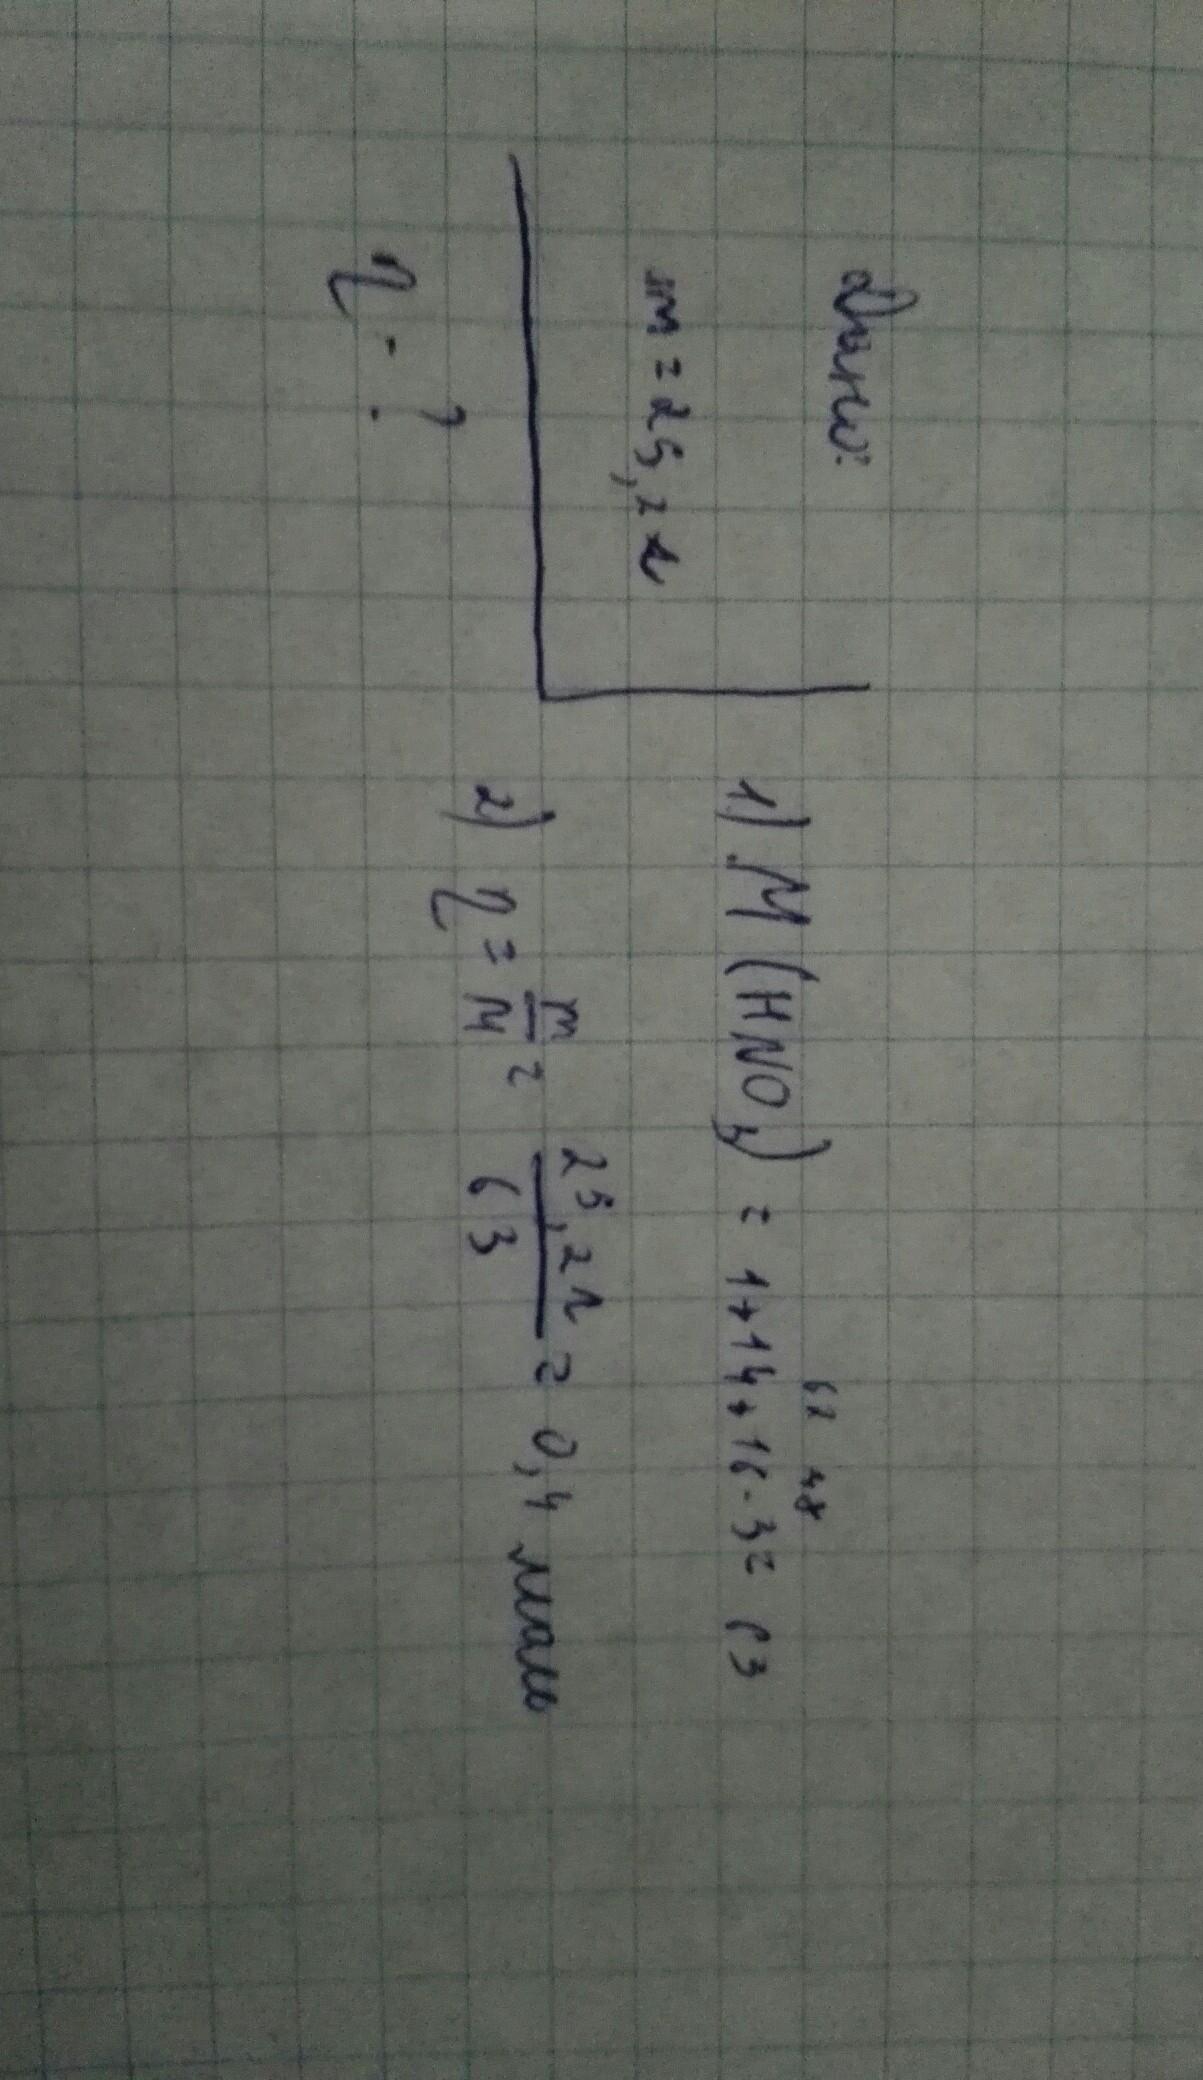 Дано:
m = 25,2 г
η - ?
1) M (HNO3) = 1+14+16·3= 63
62 48
2) η = m/M = 25,2г/63 = 0,4 моль